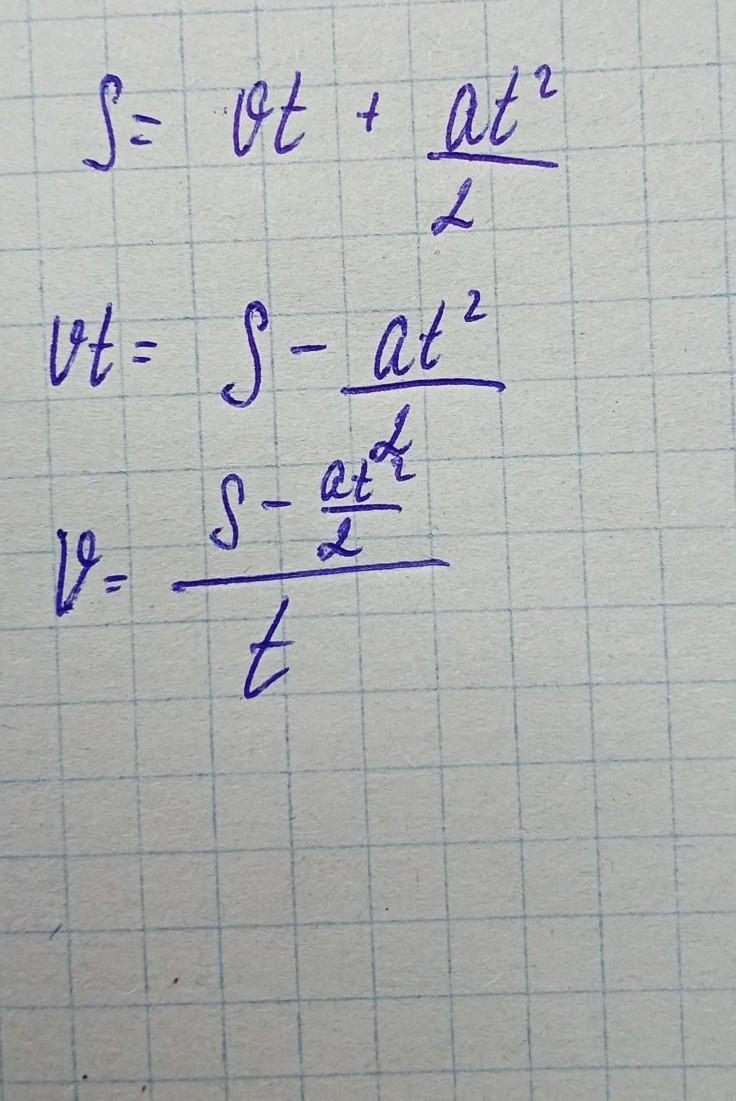 S = vt + at²/2
vt = S - at²/2
v = (S - at²/2)/t